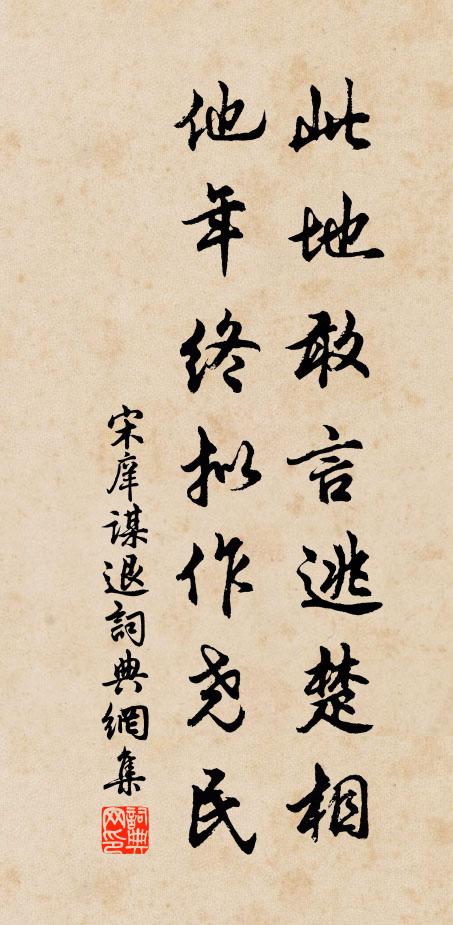 此地敢言逃楚相
他年终拟作尧民
宋庠謀退詞典網集
詞典網印